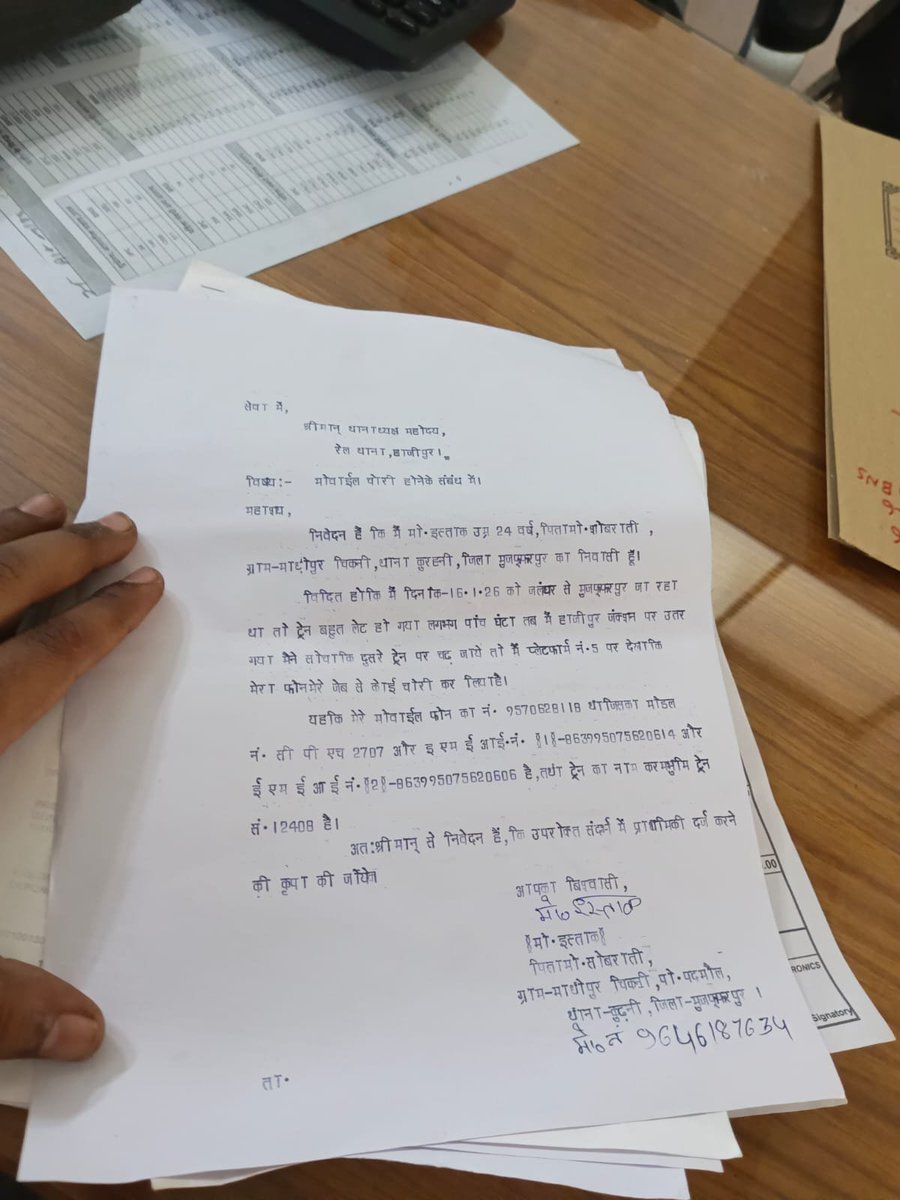 सेवा में,
श्रीमान् थानाध्यक्ष महोदय,
रेल थाना,हाजीपुर।
विषय:- मोवाईल चोरी होनेके संबंध में।
महाशय,
निवेदन हैं कि मैं मो·इस्ताक उम्र 24 वर्ष,पितामो·शोबराती ,
ग्राम-माधीपुर चिकनी,थाना कुरहनी,जिला मुजफ्फरपुर का निवासी हूँ।
विदित होकि मैं दिनांक-16·1·26 को जलंधर से मुजफ्फरपुर जा रहा
था तो ट्रेन बहुत लेट हो गया लगभग पांच घंटा तब मैं हाजीपुर जंक्शन पर उतर
गया मैने सोचाकि दुसरे ट्रेन पर चढ़ जायें तो मैं प्लेटफार्म नं·5 पर देखाकि
मेरा फोनमेरे जेब से कोई चोरी कर लियाहै।
यहकि मेरे मोवाईल फोन का नं· 9570628118 थाजिसका मोडल
नं· सी पी एच 2707 और इ एम ई आई·नं· §1§-863995075620614 और
ई एम ई आ ई नं·§2§-863995075620606 है,तथा ट्रेन का नाम करमभुमि ट्रेन
सं·12408 है।
अत:श्रीमान् से निवेदन हैं,कि उपरोक्त संदर्भ में प्राथमिकी दर्ज करने
की कृपा की जाये।
आपका बिश्वासी,
मो० इस्ताक
§मो·इस्ताक§
पितामो·सोबराती,
ग्राम-माधीपुर चिकनी,पो·पदमौल,
थाना-कुढ़नी,जिला-मुजफ्फरपुर ।
मो० नं 9646187634
ता·
RONICS
Signatory
.00